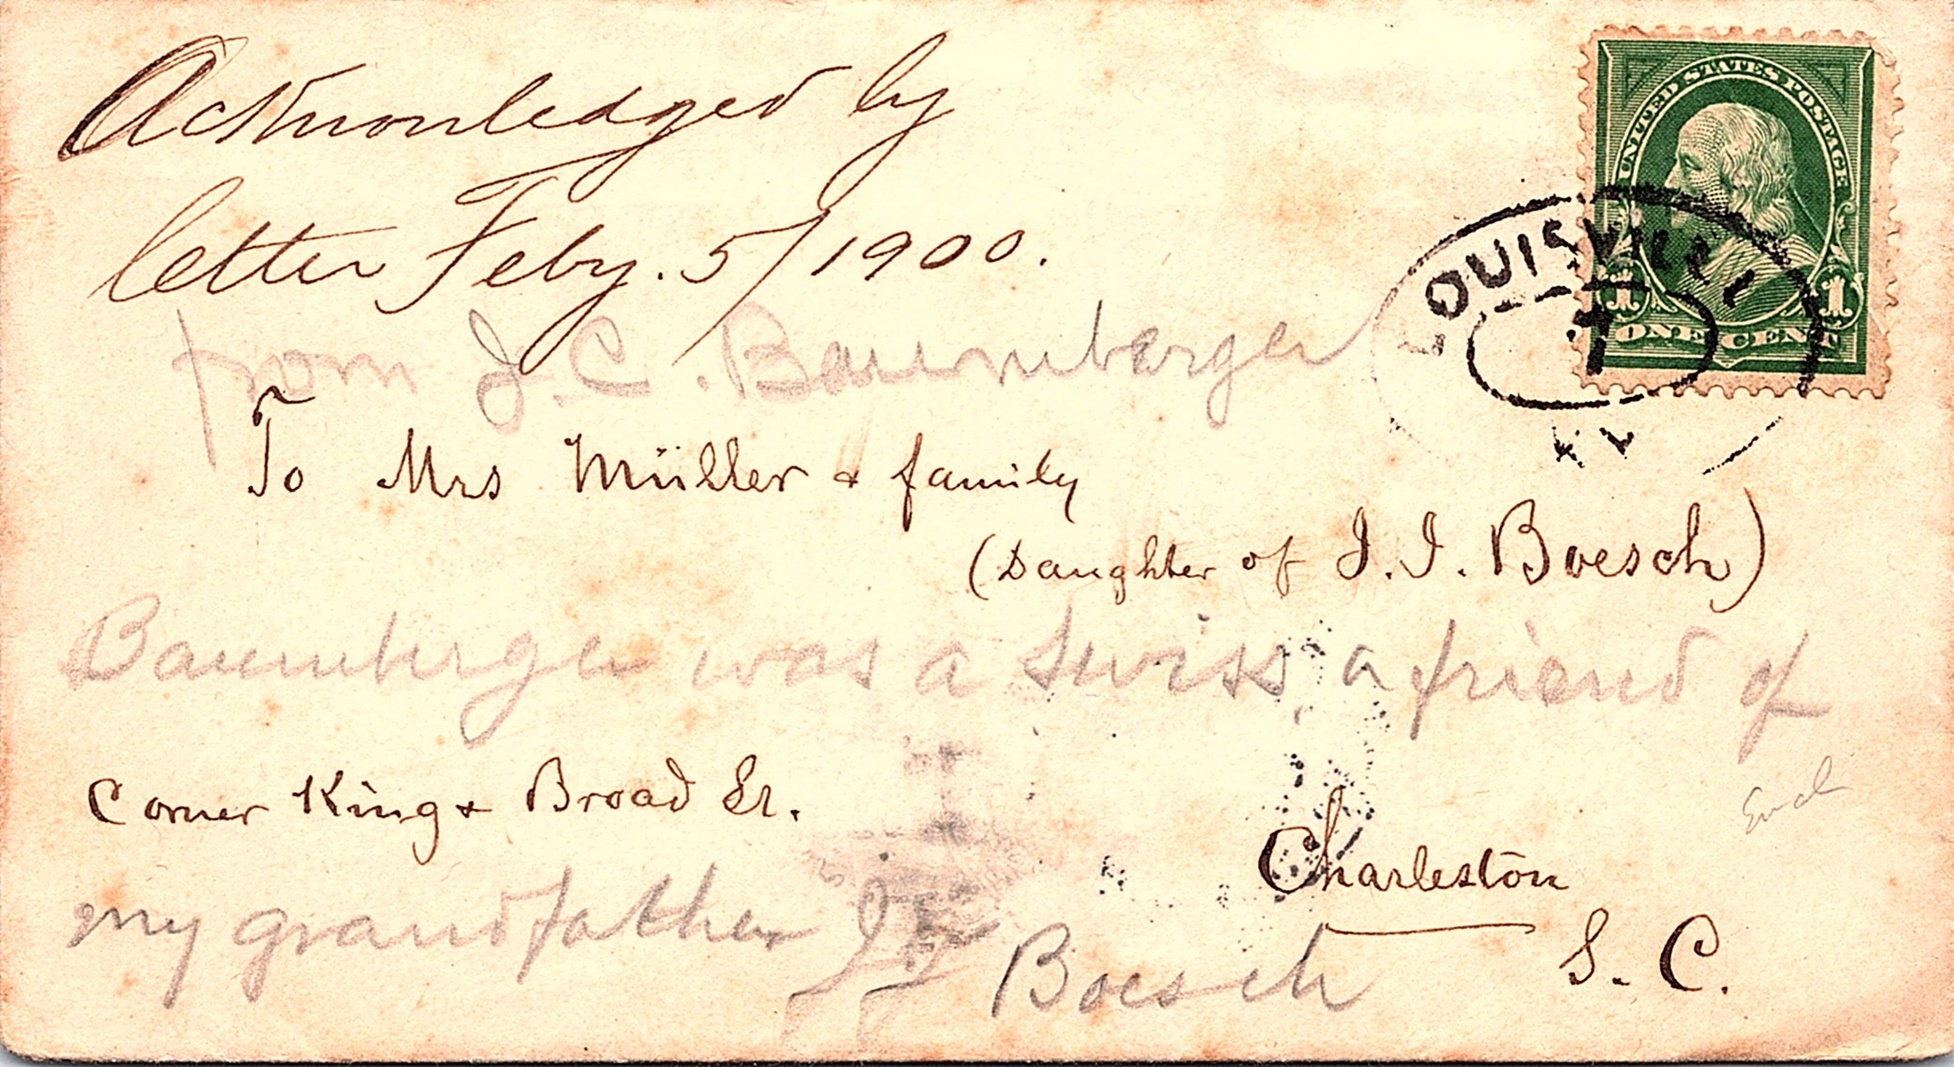 Acknowledged by
letter Feby. 5/1900.
from J. C. Baumberger
To Mrs Müller & family
(Daughter of J. J. Boesch)
Baumberger was a Swiss a friend of
Corner King & Broad St.
my grandfather J J Boesch
Charleston
S. C.
UNITED STATES POSTAGE
1 1
ONE CENT
LOUISVILLE
KY